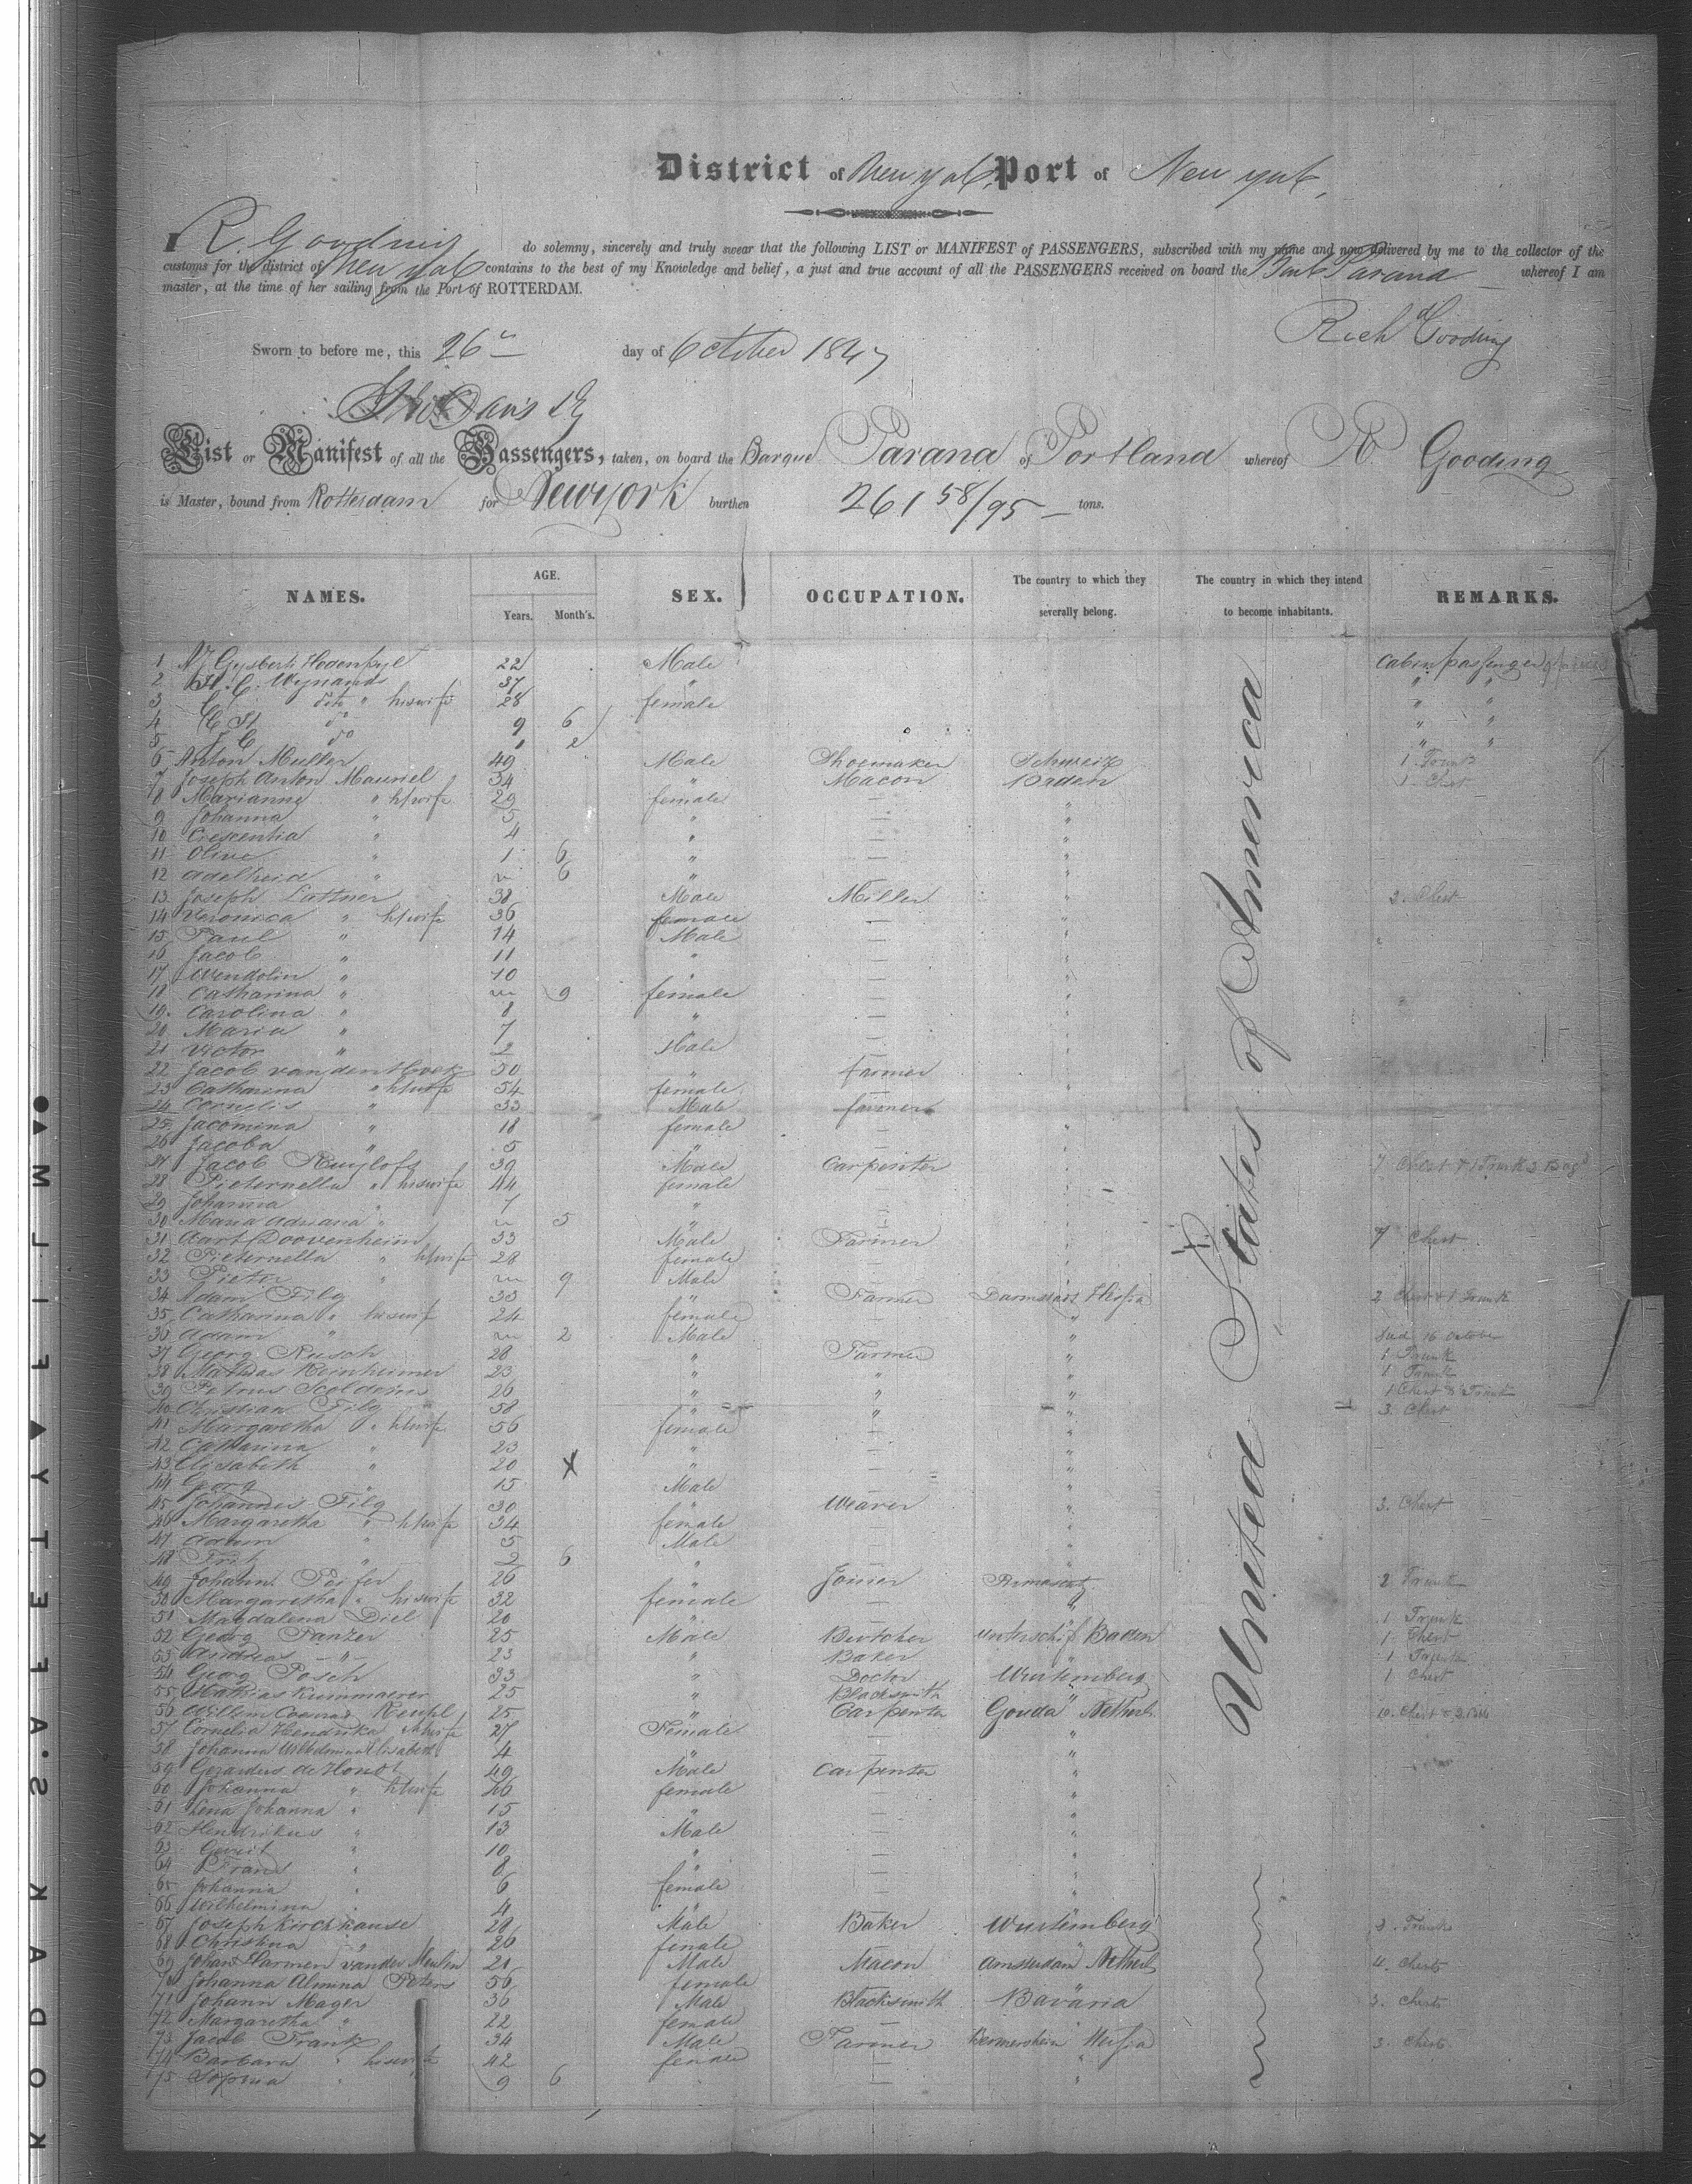 District of New York, Port of New York,
I R. Gooding do solemny, sincerely and truly swear that the following LIST or MANIFEST of PASSENGERS, subscribed with my name and now delivered by me to the collector of the
customs for the district of New York contains to the best of my Knowledge and belief, a just and true account of all the PASSENGERS received on board the Bark Parana whereof I am
master, at the time of her sailing from the Port of ROTTERDAM.
Richd Gooding
Sworn to before me, this 26th day of October 1847
List or Manifest of all the Passengers, taken, on board the Barque Parana of Portland whereof R Gooding
is Master, bound from Rotterdam for Newyork burthen 261 58/95 tons.
NAMES. AGE. Years. Month's. SEX. OCCUPATION. The country to which they severally belong. The country in which they intend to become inhabitants. REMARKS.
United States of America
1 Gysberti Hodenpyl 22 Male Cabin passenger
2 Wynands 37 " " "
3 dito " his wife 28 female " "
4 do 9 6 " "
5 do 2 " "
6 Anton Muller 49 Male Shoemaker Schweiz 1 Trunk
7 Joseph Anton Mauriel 34 " Macon Baden 1 Chest
8 Marianne " his wife 29 female — "
9 Johanna " 5 " — "
10 Crescentia " 4 " — "
11 Olive " 1 6 " — "
12 Adelheid " 6 " — "
13 Joseph Lattner 38 Male Miller " 2 Chest
14 Veronica " his wife 36 female — "
15 Paul " 14 Male — "
16 Jacob " 11 " — "
17 Wendolin " 10 " — "
18 Catharina " 9 female — "
19 Carolina " 8 " — "
20 Maria " 7 " — "
21 Victor " 2 Male — "
22 Jacob van den Hoek 50 " Farmer
23 Catharina " his wife 54 female — "
24 Cornelis " 33 Male farmer
25 Jacomina " 18 female — "
26 Jacoba " 5 " —
27 Jacob Ruylofs 39 Male Carpenter 7 Chest & 1 Trunk 3 Bags
28 Pieternella " his wife 44 female —
29 Johanna " 7 " —
30 Maria Adriana " 5 " —
31 Aart Doovenheim 33 Male Farmer 7 Chest
32 Pieternella " his wife 28 female —
33 Pieter " 9 Male —
34 Adam Filg 33 " Farmer Darmstadt Hessia 2 Chest & 1 Trunk
35 Catharina " his wife 24 female — "
36 Adam " 2 Male — " died 16 October
37 Georg Rusch 28 " Farmer " 1 Trunk
38 Mathias Reinheimer 23 " " " 1 Trunk
39 Petrus 26 " " " 1 Chest & Trunk
40 Christian Filg 58 " " " 3 Chest
41 Margaretha " his wife 56 female — "
42 Catharina " 23 " — "
43 Elisabeth " 20 " — "
44 Georg " 15 Male — "
45 Johannes Filg 30 " Weaver " 3 Chest
46 Margaretha " his wife 34 female — "
47 Adam " 5 Male — "
48 Fritz " 2 6 " — "
49 Johann Peifer 26 " Joiner 2 Trunk
50 Margaretha " his wife 32 female — "
51 Magdalena Diel 20 " — 1 Trunk
52 Georg Panzer 25 Male Butcher Baden 1 Chest
53 Andreas " 23 " Baker " 1 Trunk
54 Georg Posch 33 " Doctor Wurtemberg 1 Chest
55 Mathias Kummaerer 25 " Blacksmith "
56 Willem Coenrad Keupl 25 " Carpenter Gouda Netherl. 10 Chest
57 Cornelia Hendrika his wife 27 Female — "
58 Johanna Wilhelmina Elisabeth 4 " — "
59 Gerardus de Hondt 49 Male Carpenter "
60 Johanna " his wife 46 female — "
61 Lena Johanna " 15 " — "
62 Hendrikus " 13 Male — "
63 Gerrit " 10 " — "
64 Frans " 8 " — "
65 Johanna " 6 female — "
66 Wilhelmina " 4 " — "
67 Joseph Kirchhause 28 Male Baker Wurtemberg 2 Trunk
68 Christina " 26 female — "
69 Johan Harmen van der Meulen 21 Male Macon Amsterdam Netherl 4 Chests
70 Johanna Almina Peters 56 female — "
71 Johann Mager 36 Male Blacksmith Bavaria 3 Chests
72 Margaretha " 22 female — "
73 Jacob Frank 34 Male Farmer Hessia 3 Chests
74 Barbara " his wife 42 female — "
75 Sophia " 9 6 — "
KODAK·SAFETY▲FILM▲●